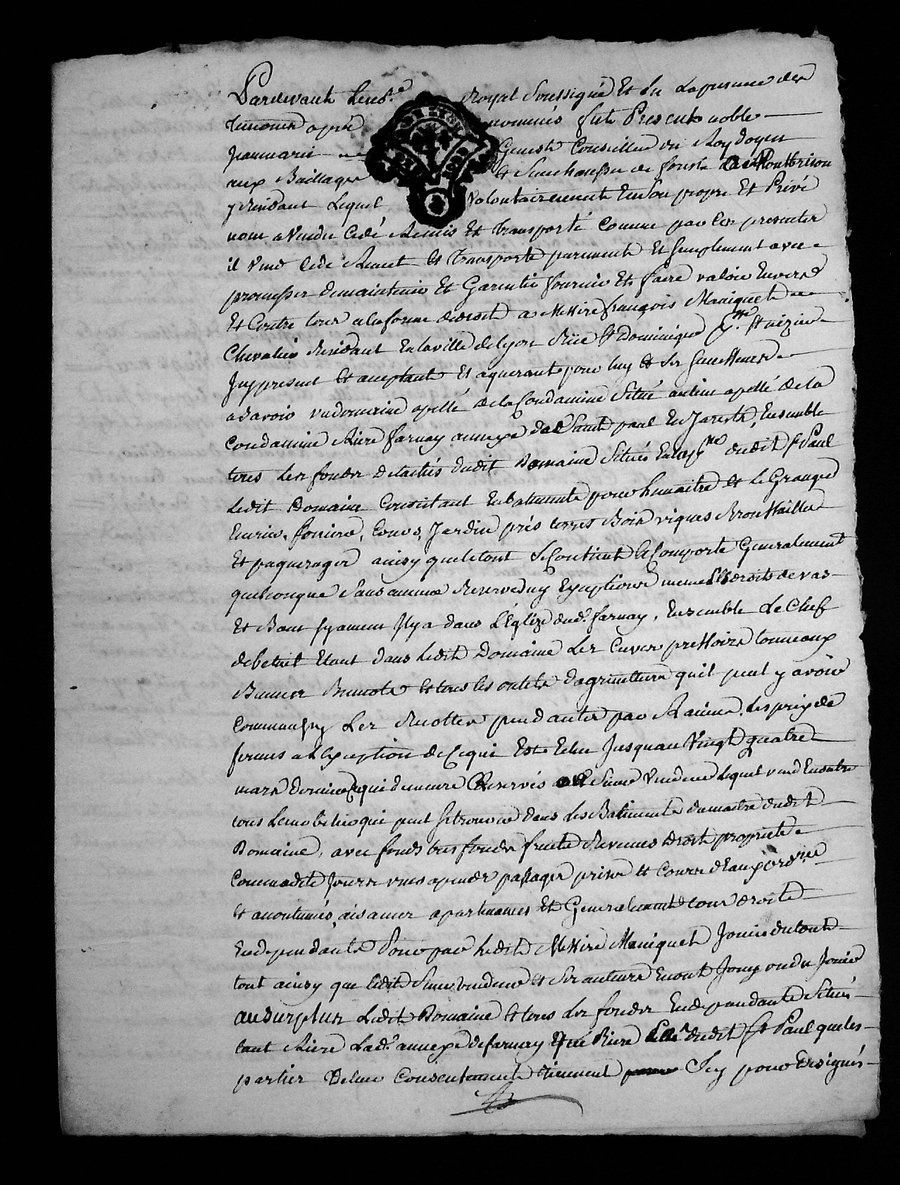 Pardevant le no.re Royal soussigné Et En La presence des
temoins apres nommés fut Present noble
Jeanmarie Genest Conseiller du Roy doyen
aux Baillage Et Senechaussée de forest de Montbrison
y residant Lequel volontairement En son propre Et Privé
nom a Vendu Cedé Remis Et Transporté Comme par les presentes
il Vend Cede Remet Et Transporte purement Et Simplement avec
promesse demaintenir Et Garentir fournir Et faire valoir Envers
Et Contre tous a la forme dedroit a Messire françois Maniquet
Chevalier Residant Enlaville delyon Rüe St Dominique
Jcy present Et acceptant Et aquerant pour luy Et Ses Successeurs
asavoir un domaine apellé dela Condamine Situé au lieu apellé de la
Condamine Rière farnay annexe de Saint paul En Jarest, Ensemble
tous Les fonds Detachés dudit Domaine Situés dudit St Paul
Ledit Domaine Consistant En batiments pour le maitre Et Le Granger
Ecurie, feniere, Cours, Jardin prés terres Bois vignes Broussailles
Et paquerages ainsy que le tout Se Contient Et Comporte Generalement
quelconque Sans aucune Reserve ny Exception meme les droits de vas
Et Banc Syaucun Il y a dans L'Eglize dud. farnay, Ensemble Le Chef
debetail Etant dans Ledit Domaine Les Cuves pressoirs tonneaux
Bennes Bennots Et tous les outils d'agriculture quil peut y avoir
Comm aussy Les Recoltes pendantes par Racines, Les prix de
fermes a L'Exception de Ce qui Est Echu Jusquau Vingt quatre
mars Dernier qui demeure Reservés Sieur Vendeur Lequel vend En outre
tous Les mobiliers qui peut Se trouver dans Les Batiments du maitre dudit
Domaine, avec fonds tres fonds fruits Revenus Droits proprietés
Commodités Jours vues apendis passages prises Et Cours d'Eaux ordres
Et acoutumés, aisances apartenances Et Generalement tous droits
En dependants Pour par Ledit Messire Maniquet Jouir du tout
tout ainsy que Ledit Sieur vendeur Et Ses auteurs En ont Jouy ou du Jouir
au surplus Ledit Domaine Et tous Les fonds En dependants Situés
tant Rière Lad. annexe de farnay que Rière dudit St Paul que les
parties De leur Consentement tiennent Jcy pour Designés